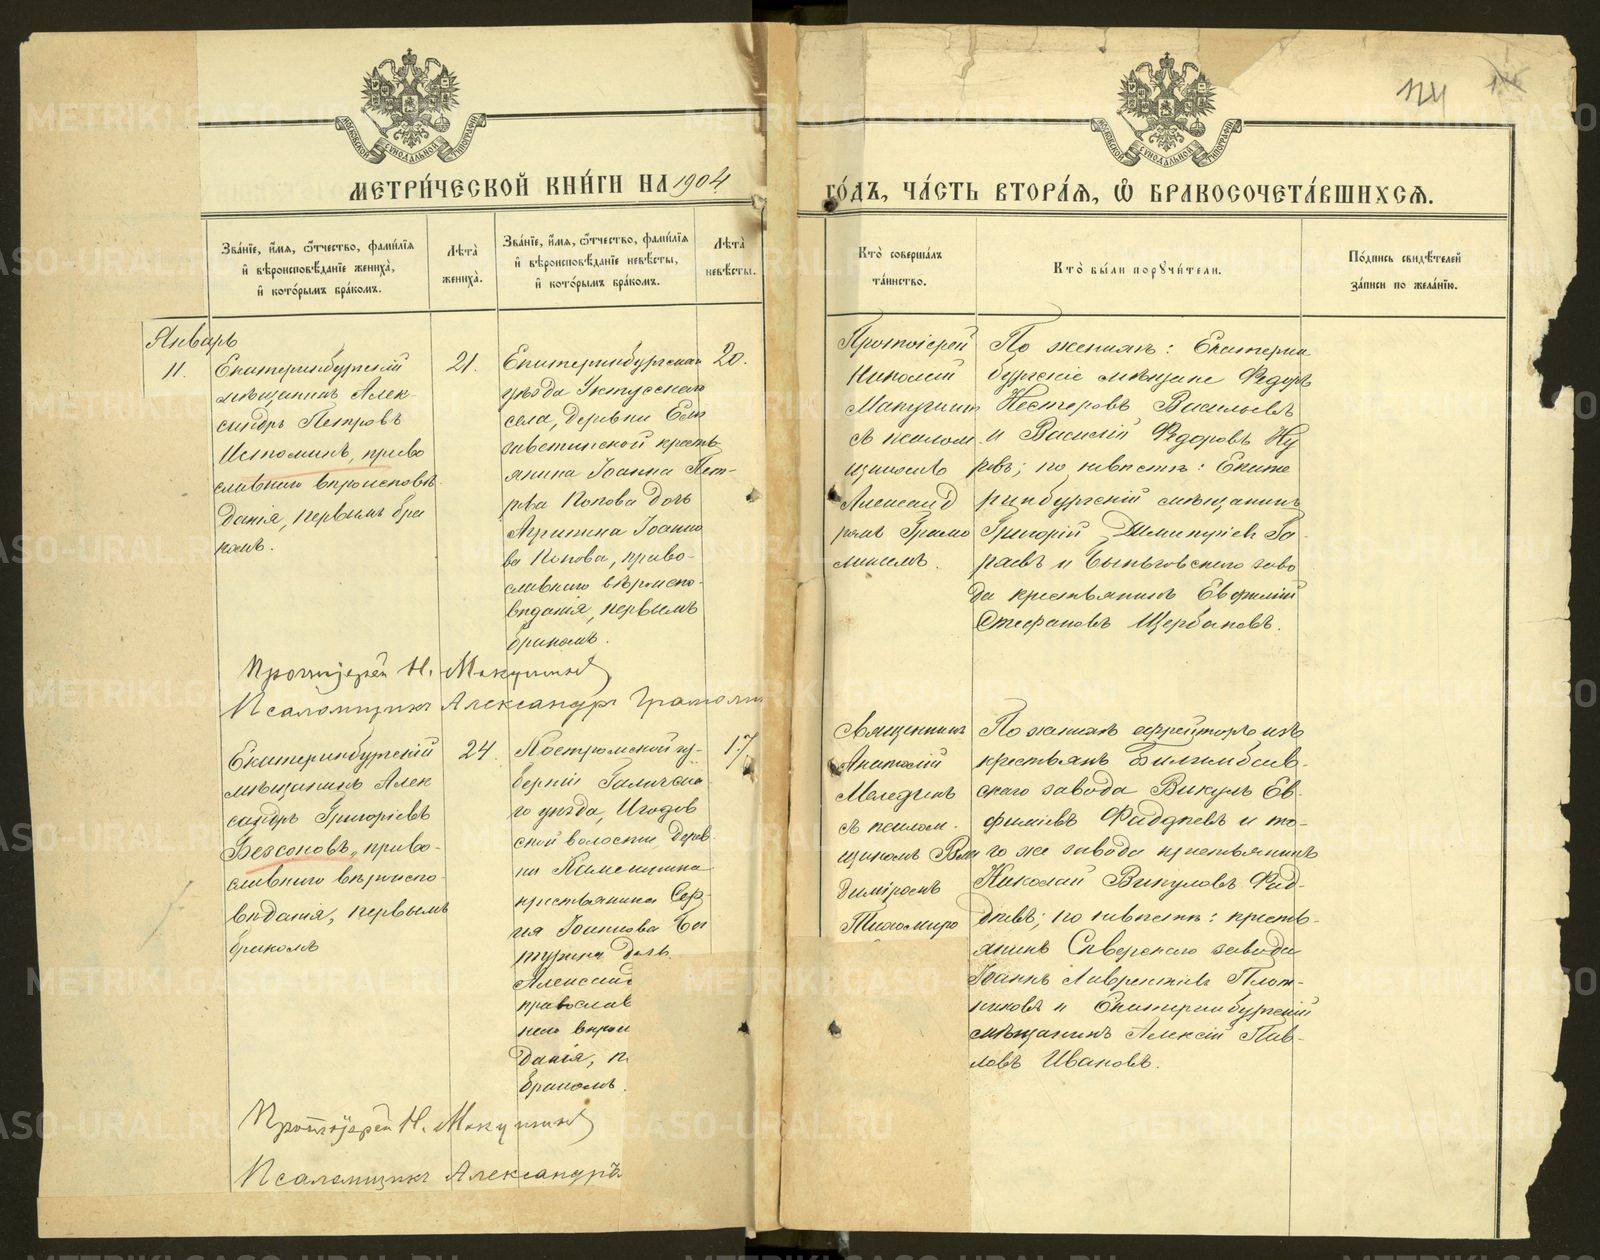 124
МЕТРИ́ЧЕСКОЙ КНИ́ГИ НА 1904
ГО́ДЪ, ЧА́СТЬ ВТОРА́Я, Ѽ БРАКОСОЧЕТА́ВШИХСЯ.
Зва́нїе, и́мя, ѻ҆́тчество, фами́лїя
и҆ вѣроисповѣ́данїе жениха̀,
и҆ кото́рымъ бра́комъ.
Лѣта̀
жениха̀.
Зва́нїе, и́мя, ѻ҆́тчество, фами́лїя
и҆ вѣроисповѣ́данїе невѣ́сты,
и҆ кото́рымъ бра́комъ.
Лѣта̀
невѣ́сты.
Кто̀ соверша́лъ
та́инство.
Кто̀ бы́ли порꙋчи́тели.
По́дпись свидѣ́телей
за́писи по жела́нїю.
Январь
11.
Екатеринбургскій
мѣщанинъ Алек
сандръ Петровъ
Истоминъ, право
славнаго вѣроисповѣ
данія, первымъ бра
комъ.
21.
Екатеринбургскаго
уѣзда Уктусскаго
села, деревни Ели
заветинской кресть
янина Іоанна Пет-
рова Попова дочь
Агрипина Іоанно
ва Попова, право-
славнаго вѣроиспо-
вѣданія, первымъ
бракомъ.
20.
Протоіерей
Николай
Макушинъ
съ псалом
щикомъ
Александ
ромъ Грамо
линымъ.
По женихѣ: Екатерин
бургскіе мѣщане Ѳедоръ
Нестеровъ Васильевъ
и Василій Ѳедоровъ
ровъ; по невѣстѣ: Екате
ринбургскій мѣщанинъ
Григорій Димитріев Га-
раевъ и Быньговскаго заво
да крестьянинъ Евфимій
Стефановъ Щербаковъ.
Протоіерей Н. Макушинъ
Псаломщикъ Александръ Грамолин
Екатеринбургскій
мѣщанинъ Алек
сандръ Григорьевъ
Безсоновъ, право-
славнаго вѣроиспо-
вѣданія, первымъ
бракомъ
24
Костромской гу-
берніи Галичска-
го уѣзда, Игодов
ской волости дерев
ни Каменника
крестьянина Сер
гія Іоаннова Ба
турина дочь
Александ
православ
наго вѣрои
данія, п
бракомъ.
17
Священникъ
Анатолій
Мелединъ
съ псалом-
щикомъ Вла
диміромъ
Тихомиро
По женихѣ ефрейторъ изъ
крестьянъ Билимбаев-
скаго завода Викулъ Ев-
фиміевъ Фаддѣевъ и то-
го же завода крестьянинъ
Николай Викуловъ Фад-
дѣевъ; по невѣстѣ: кресть-
янинъ Сѣверскаго завода
Іоаннъ Лаврентіевъ Плот-
никовъ и Екатеринбургскій
мѣщанинъ Алексій Пав-
ловъ Ивановъ.
Протоіерей Н. Макушинъ
Псаломщикъ Александръ